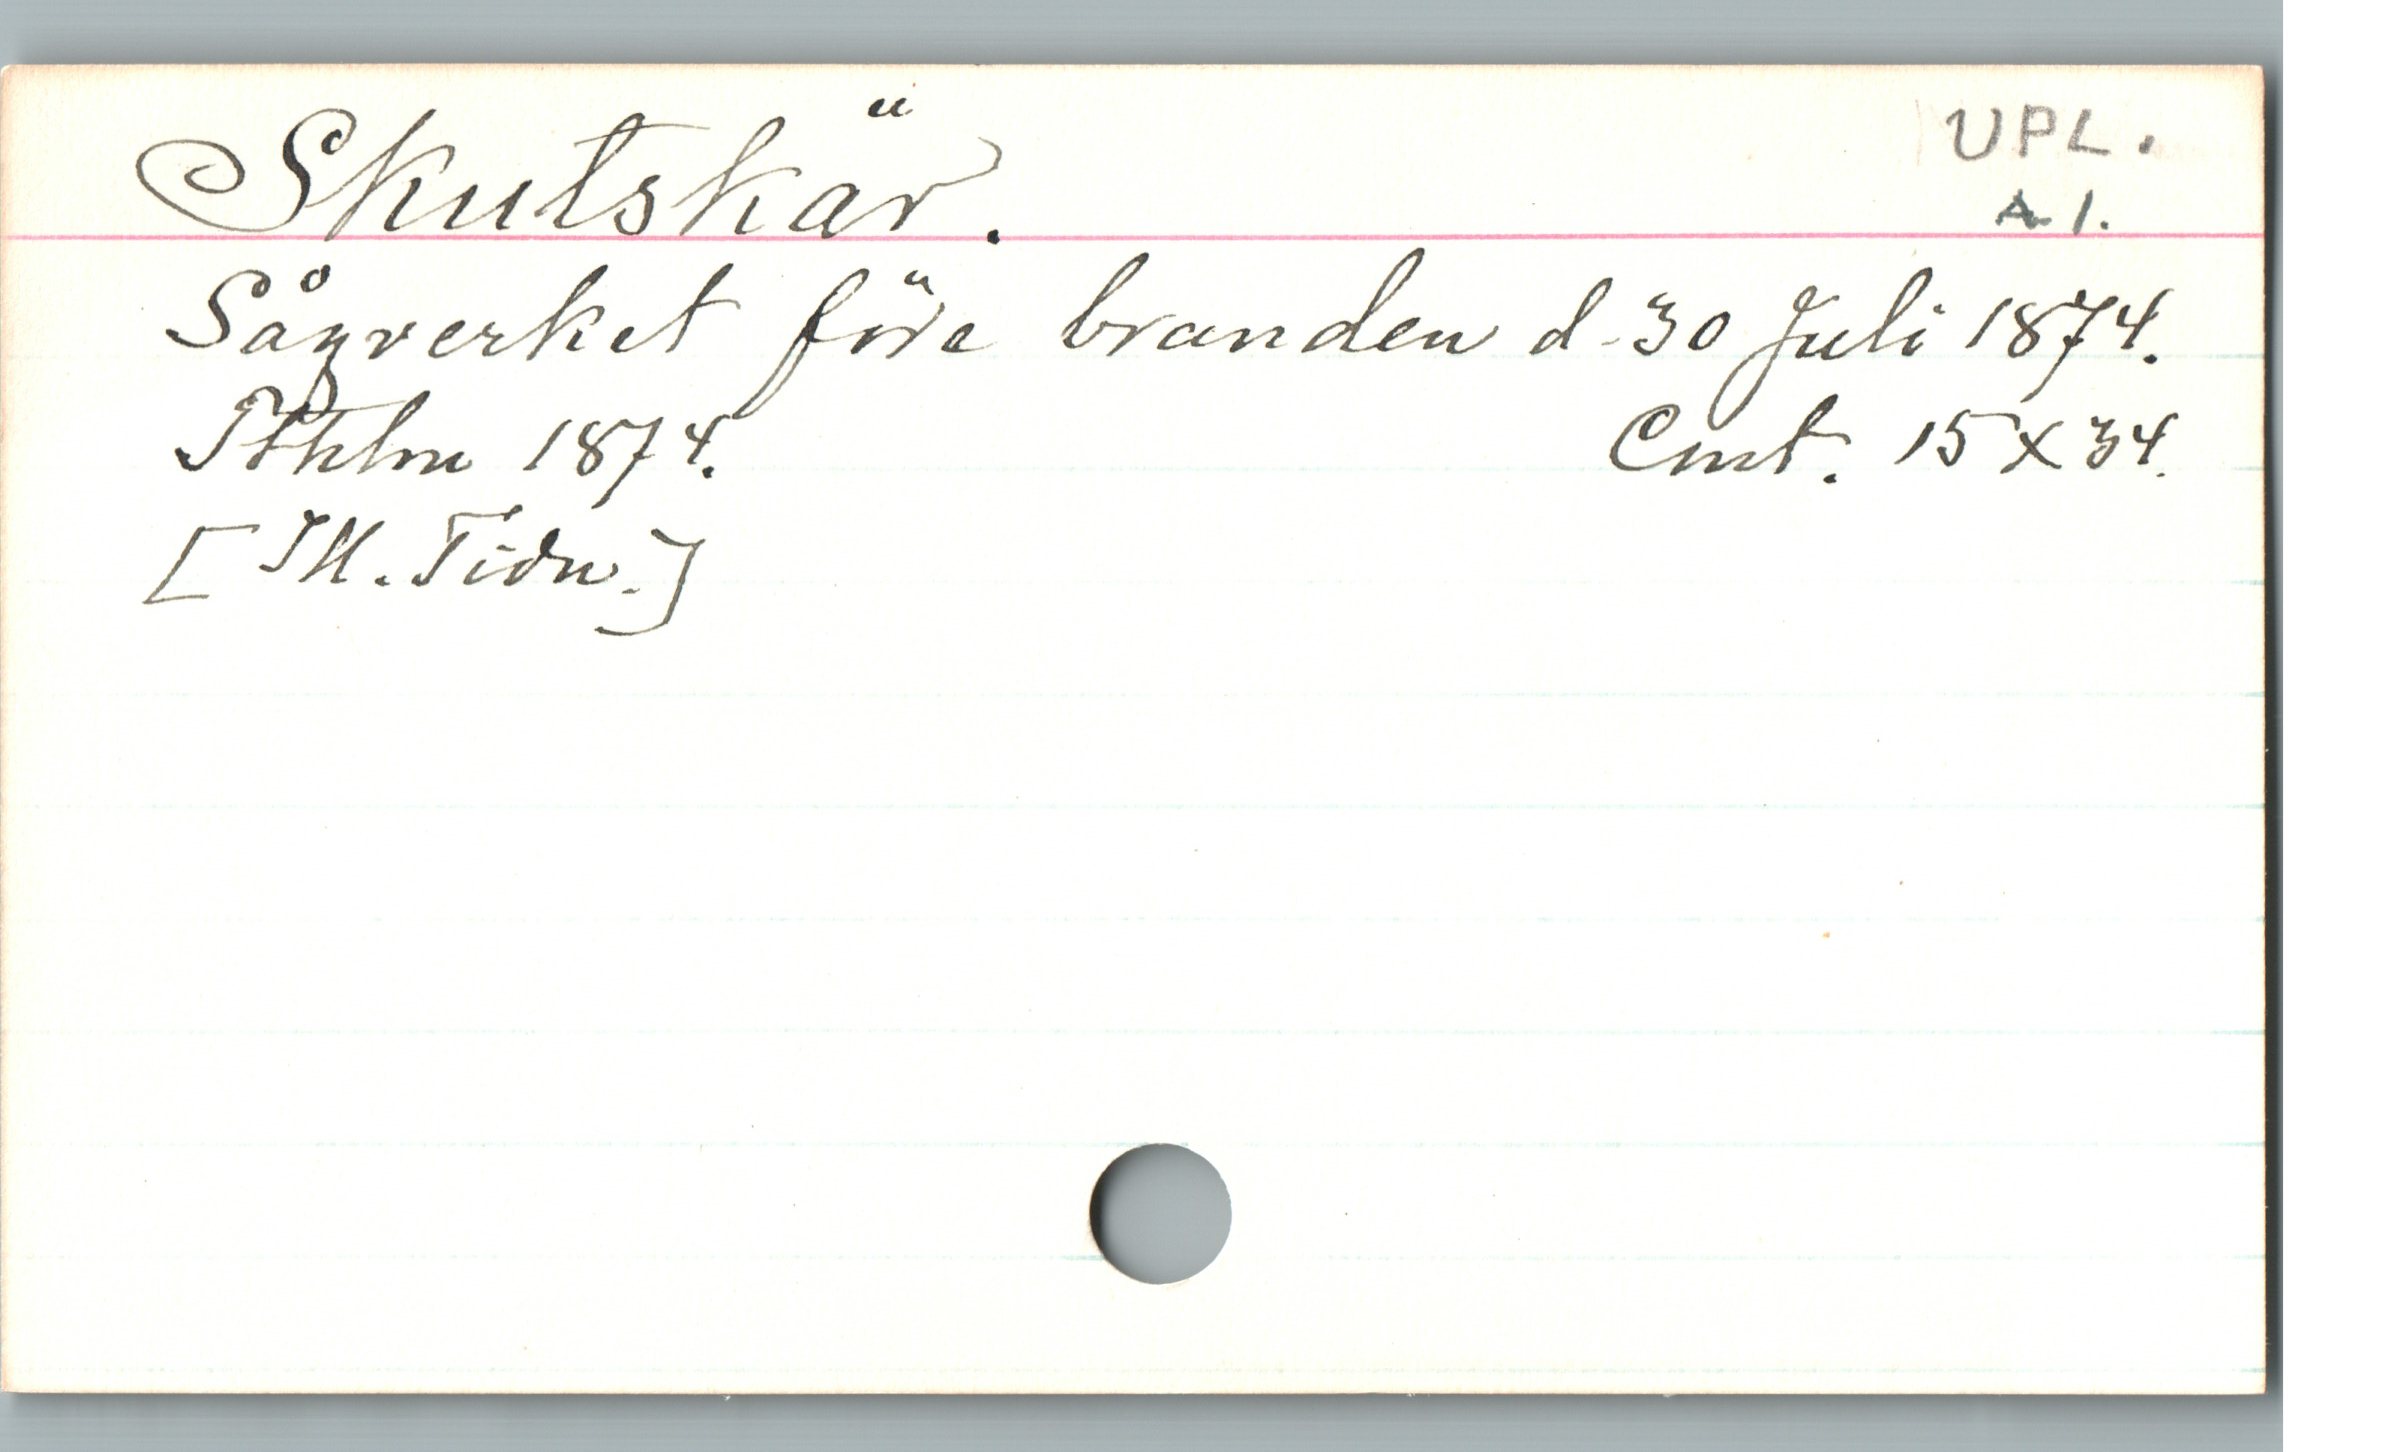 Skutskär.
UPL.
A 1.
Sågverket före branden d. 30 Juli 1874.
Sthlm 1874. Cmt. 15 X 34.
[Ill. Tidn.]